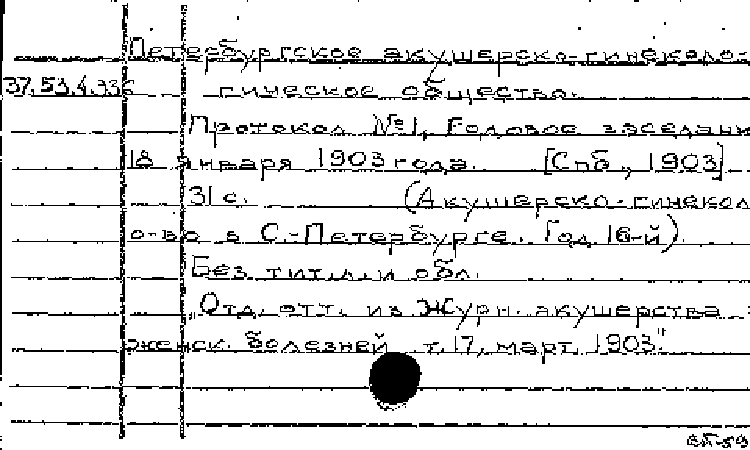 Петербургское акушерско-гинеколо-
37.53.4.336 гическое общество.
Протокол №1, Годовое заседани
18 января 1903 года. [Спб., 1903]
31 с. (Акушерско-гинекол
о-во в С.-Петербурге. Год 16-й)
Без тит. л. и обл.
„Отд. отт. из Журн. акушерства
женск. болезней т. 17, март 1903"